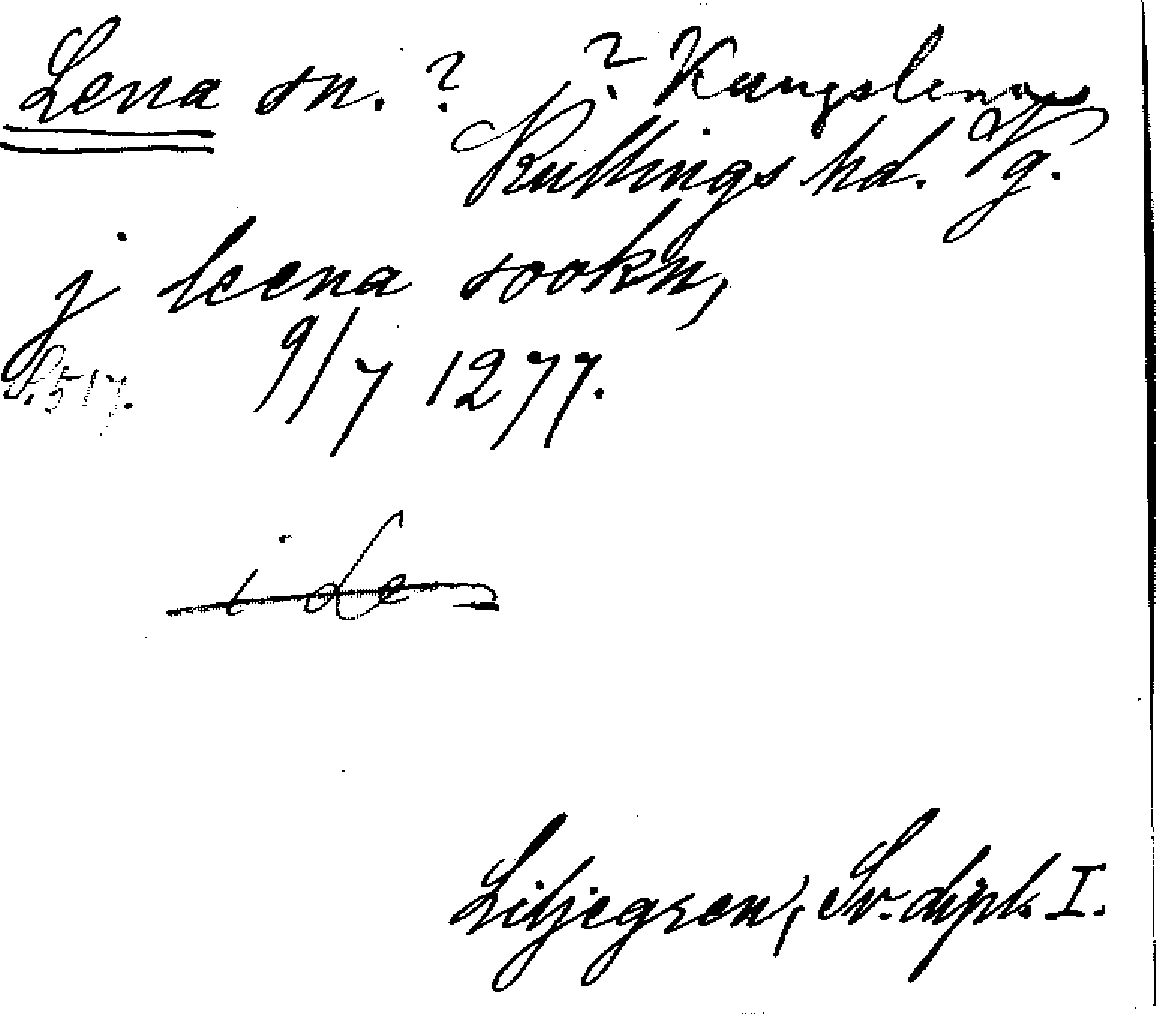 Lena sn. ? ? Kungslena
Kullings hd. Vg.
j leena sookn,
S. 517. 9/7 1277.
i Le
Liljegren, Sv. dipl. I.